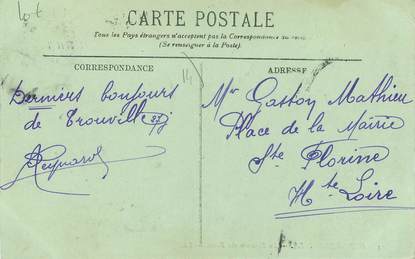 Lot
CARTE POSTALE
Tous les Pays étrangers n'acceptent pas la Correspondance au recto
(Se renseigner à la Poste).
CORRESPONDANCE
ADRESSE
Derniers bonjours
de Trouville
Mr Gaston Mathieu
Place de la Mairie
Ste Florine
Hte Loire